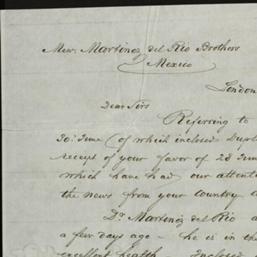 Mess. Martinez del Rio Brothers
Mexico
London
Dear Sirs
Referring to
30 June (of which inclose Dupl
receipt of your favor of 28 June
which have had our attenti
the news from your country
Dr. Martinez del Rio a
a few days ago - he is in the
excellent health Inclosed